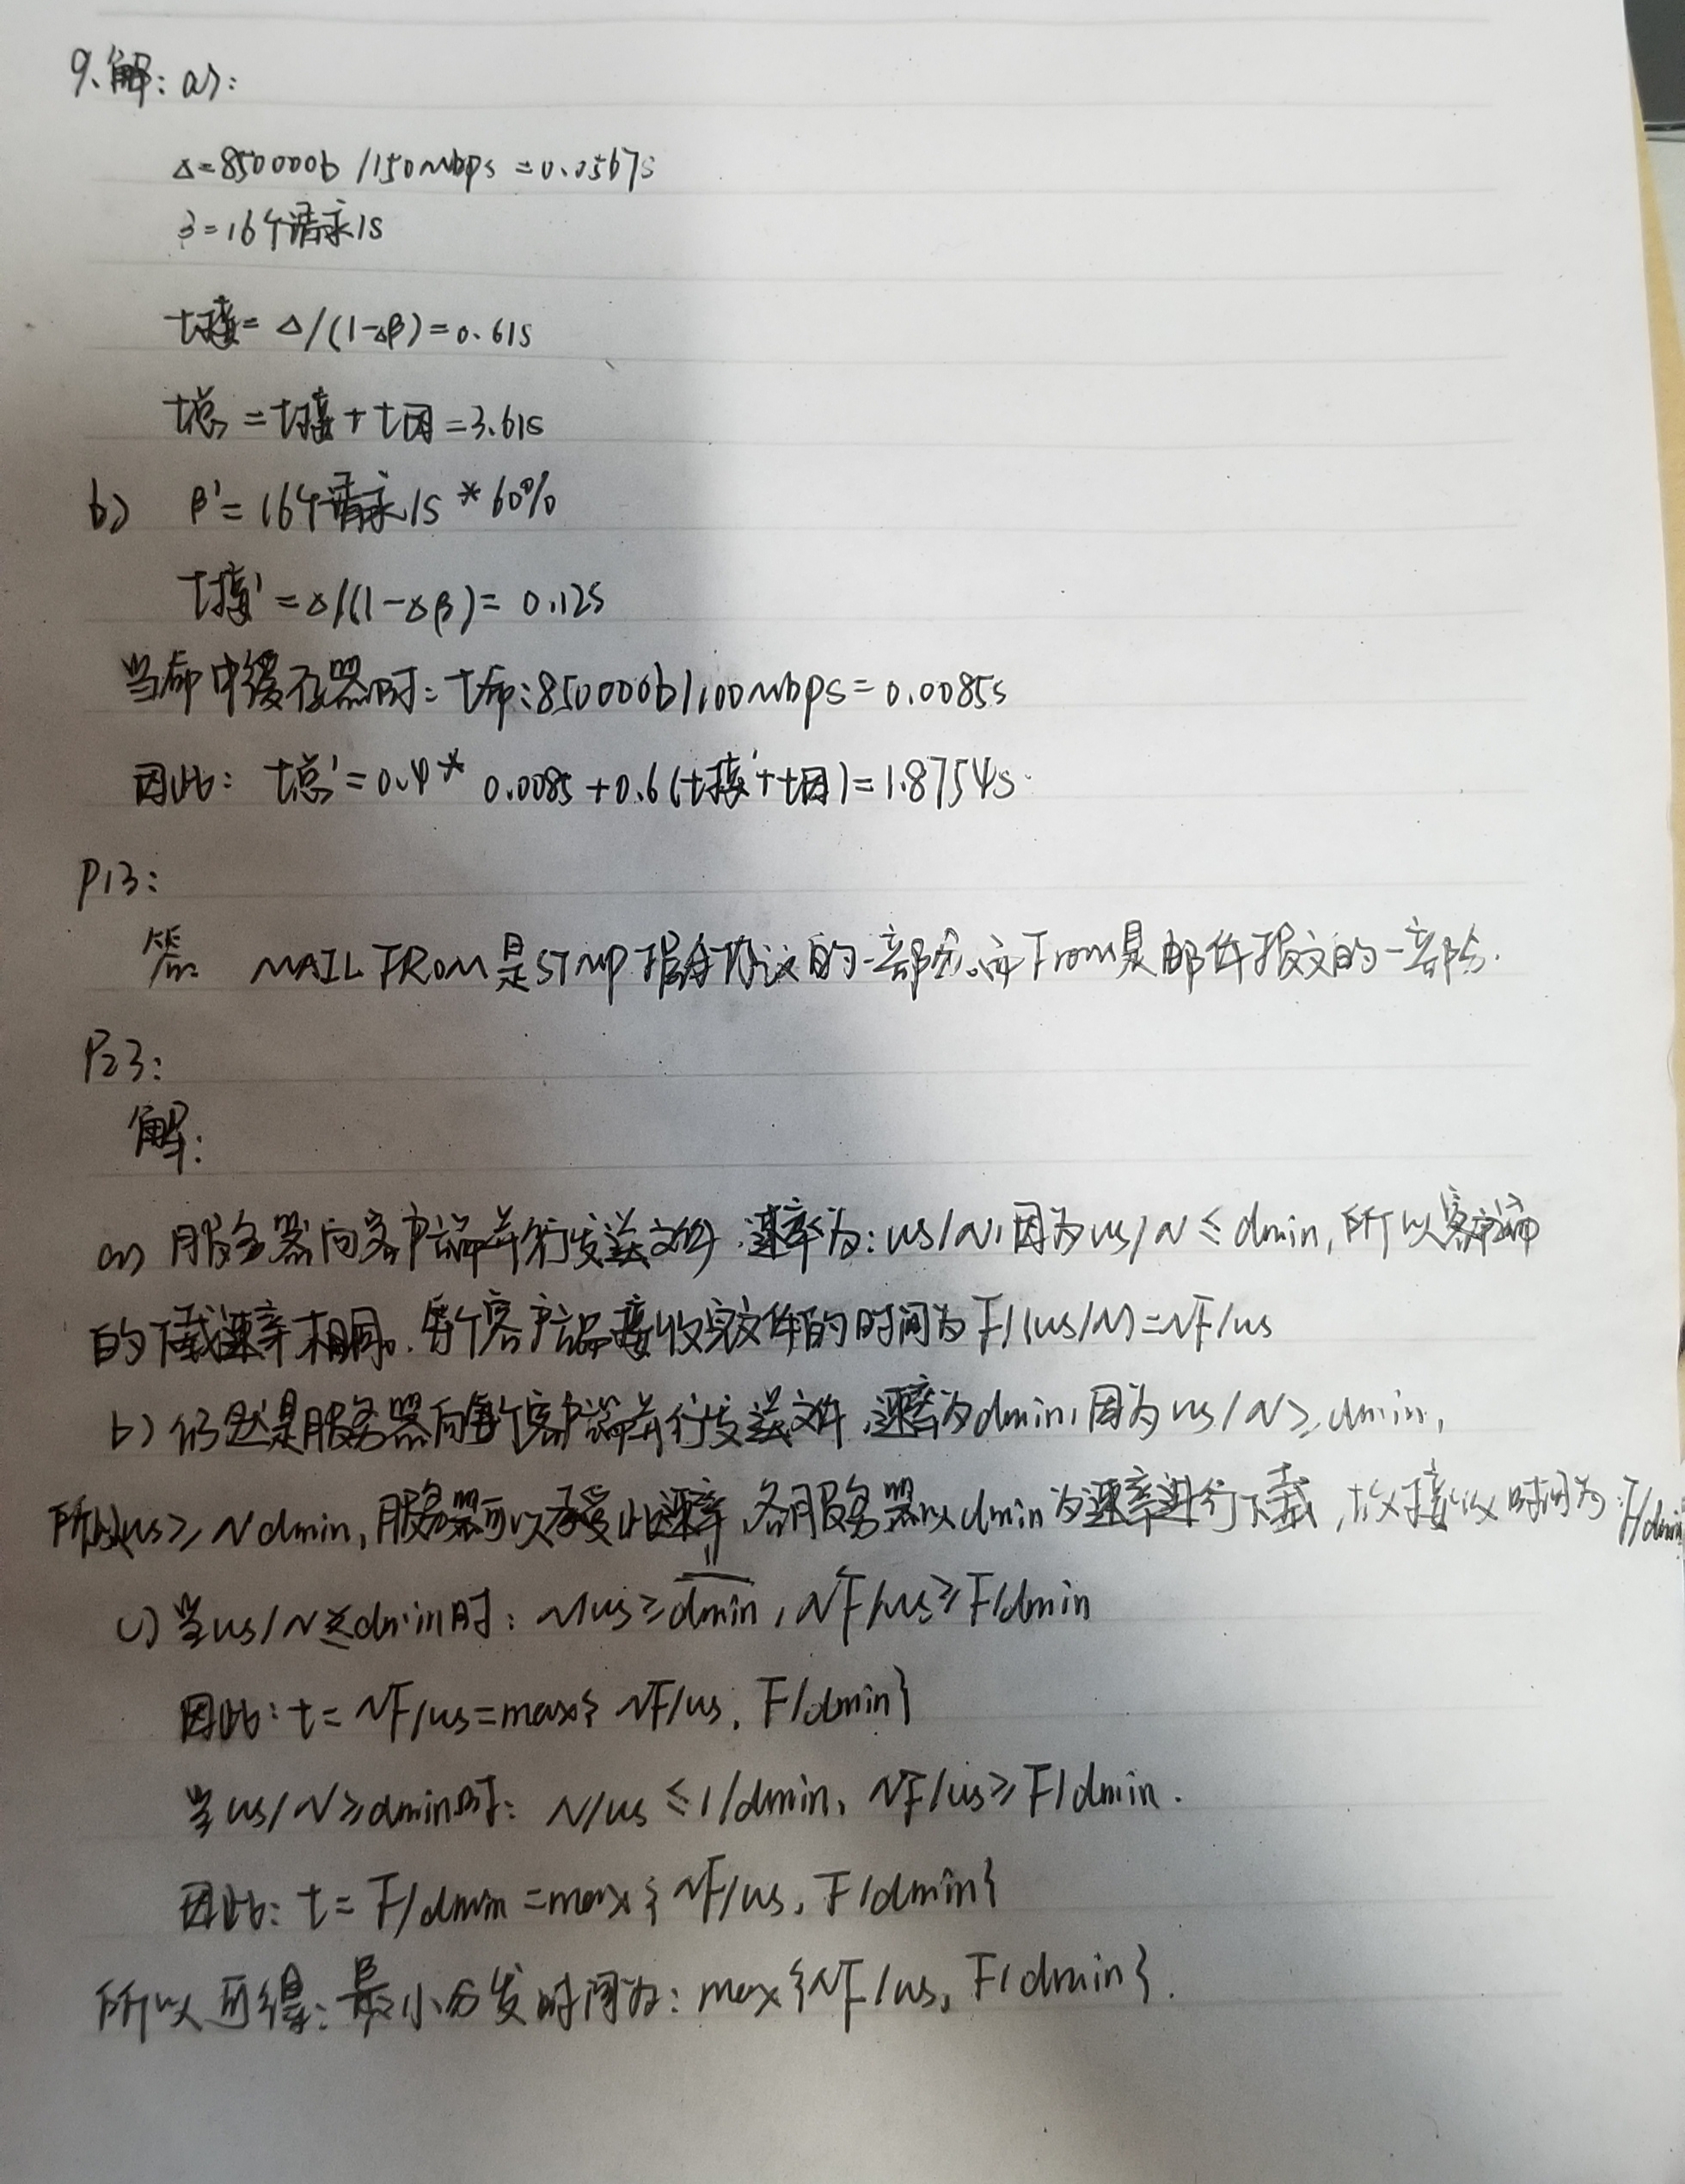 9、解：a)：
Δ=850000b /150mbps =0.0567s
β=16个请求/s
t接= Δ/(1-Δβ)=0.61s
t总 =t接+t因=3.61s
b) β'=16个请求/s *60%
t接'=Δ/(1-Δβ)= 0.12s
当命中缓存器时：t命:850000b/100mbps=0.0085s
因此：t总'=0.4* 0.0085+0.6(t接'+t因)=1.8754s.
P13:
答 MAIL FROM是STMP 指令协议的一部分。而From是邮件报文的一部分.
P23:
解：
a) 服务器向客户端并行发送文件，速率为：us/N，因为us/N ≤ dmin，所以客户端
的下载速率相同。每个客户端接收完文件的时间为F/(us/N)=NF/us
b) 仍然是服务器向每个客户端并行发送文件，速率为dmin，因为us/N≥dmin，
所以us≥Ndmin，服务器可以承受此速率，各服务器以dmin为速率进行下载，故接收时间为：F/dmin
c) 当us/N≤dmin时：N/us≥dmin，NF/us≥F/dmin
因此：t= NF/us=max{ NF/us, F/dmin}
当us/N≥dmin时：N/us ≤1/dmin，NF/us≥F/dmin.
因此：t= F/dmin =max{ NF/us, F/dmin}
所以可得：最小分发时间为：max{NF/us, F/dmin}.